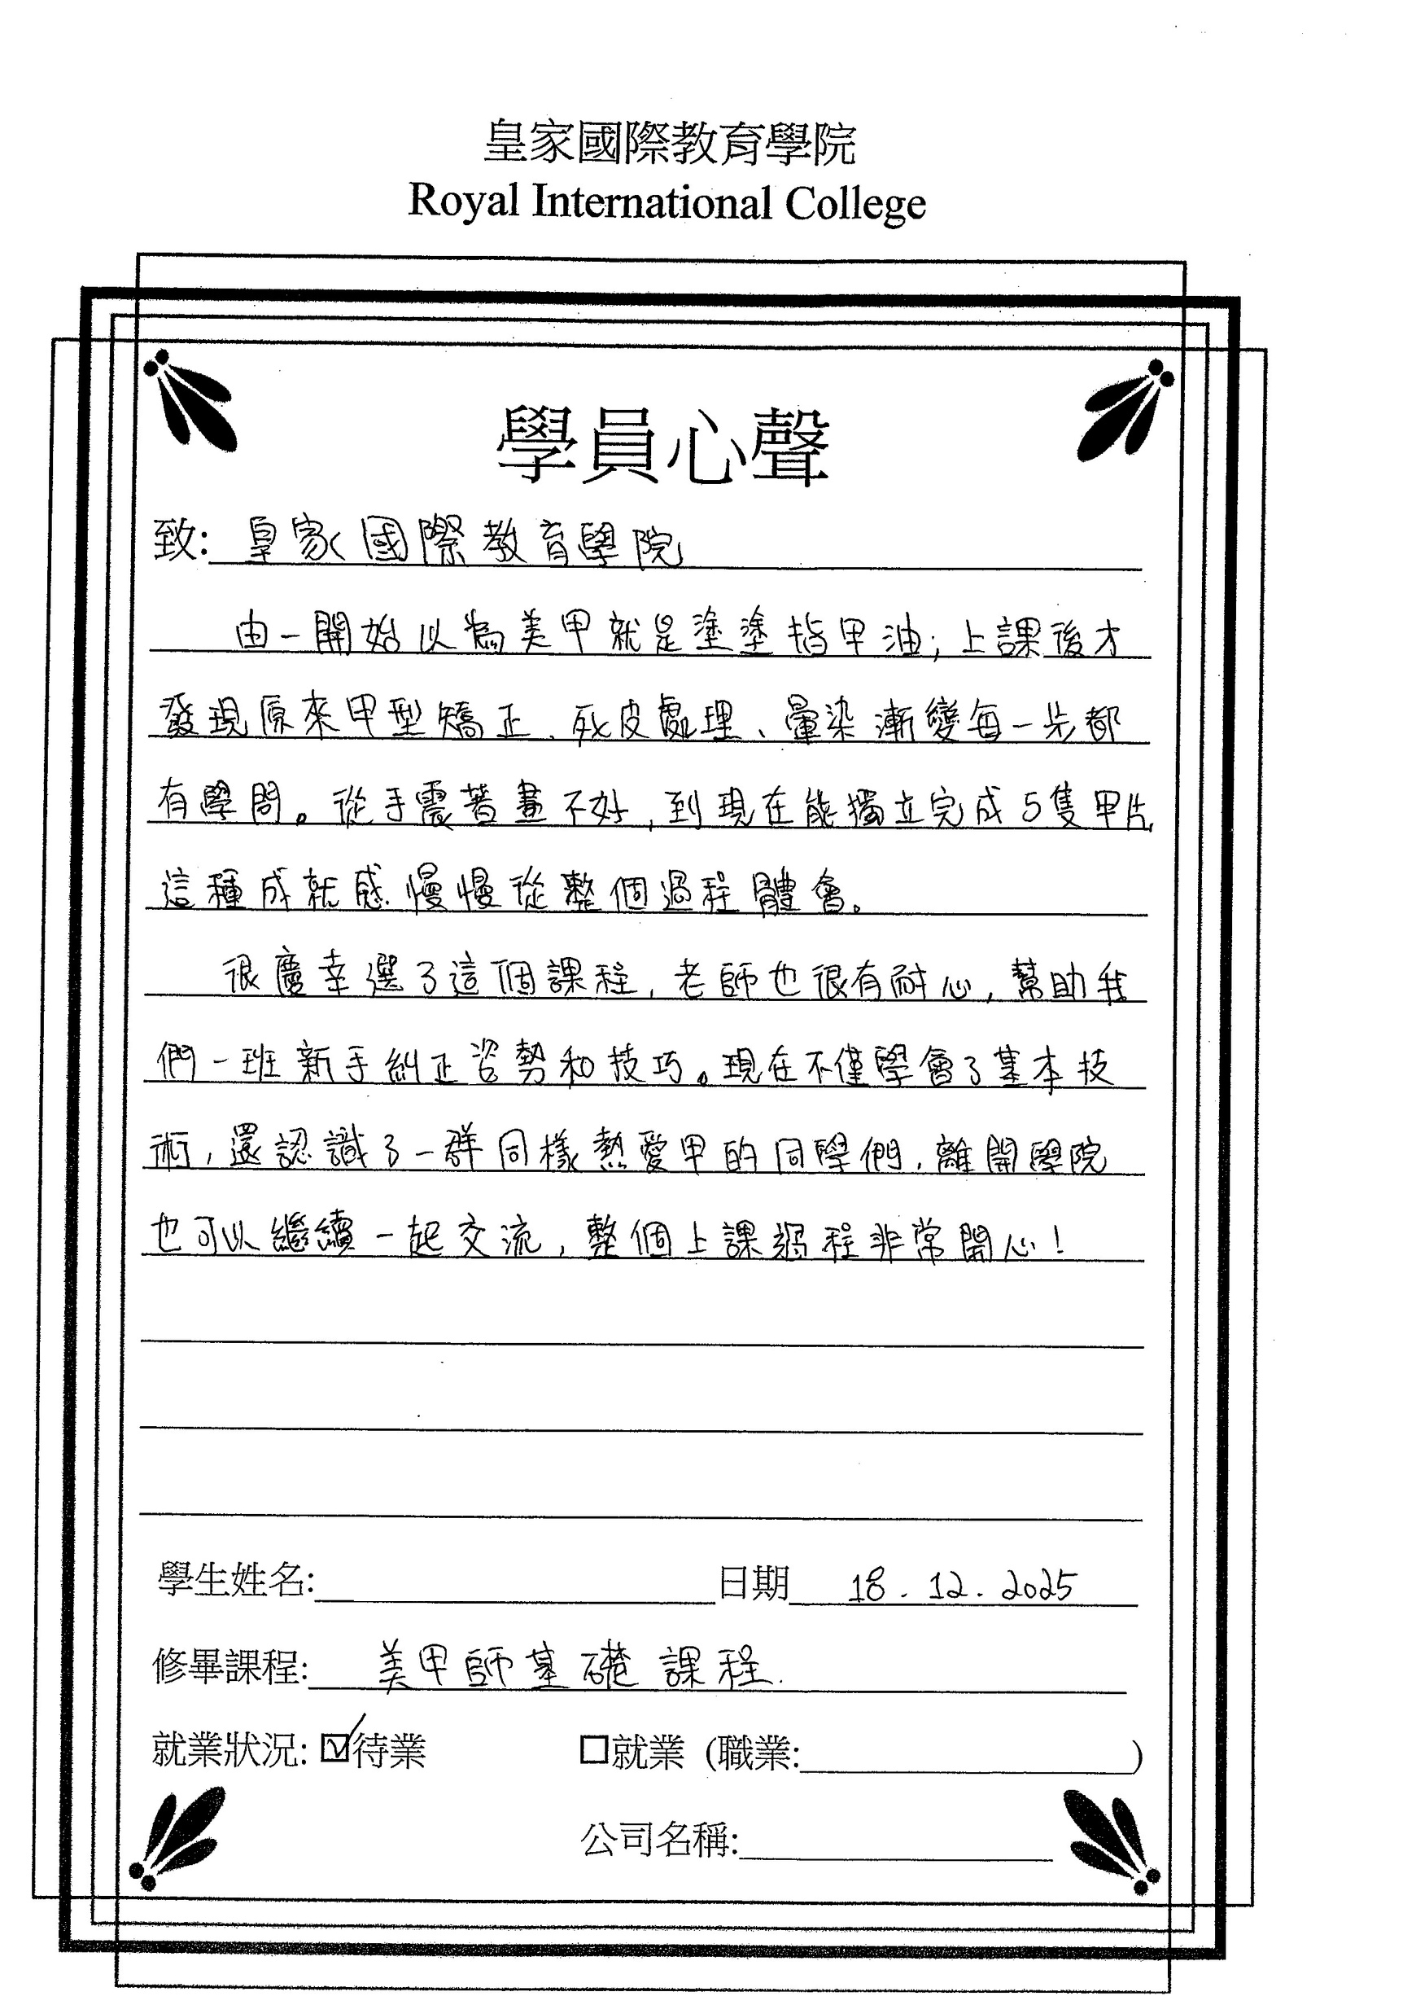 皇家國際教育學院
Royal International College
學員心聲
致: 皇家國際教育學院
由一開始以為美甲就是塗塗指甲油; 上課後才
發現原來甲型矯正、死皮處理、暈染漸變每一步都
有學問。從手震著畫不好, 到現在能獨立完成5隻甲片
這種成就感慢慢從整個過程體會。
很慶幸選了這個課程, 老師也很有耐心, 幫助我
們一班新手糾正姿勢和技巧。現在不僅學會了基本技
術, 還認識了一群同樣熱愛甲的同學們, 離開學院
也可以繼續一起交流, 整個上課過程非常開心!
學生姓名: 日期 18.12.2025
修畢課程: 美甲師基礎課程.
就業狀況: ☑待業 □就業 (職業: )
公司名稱: